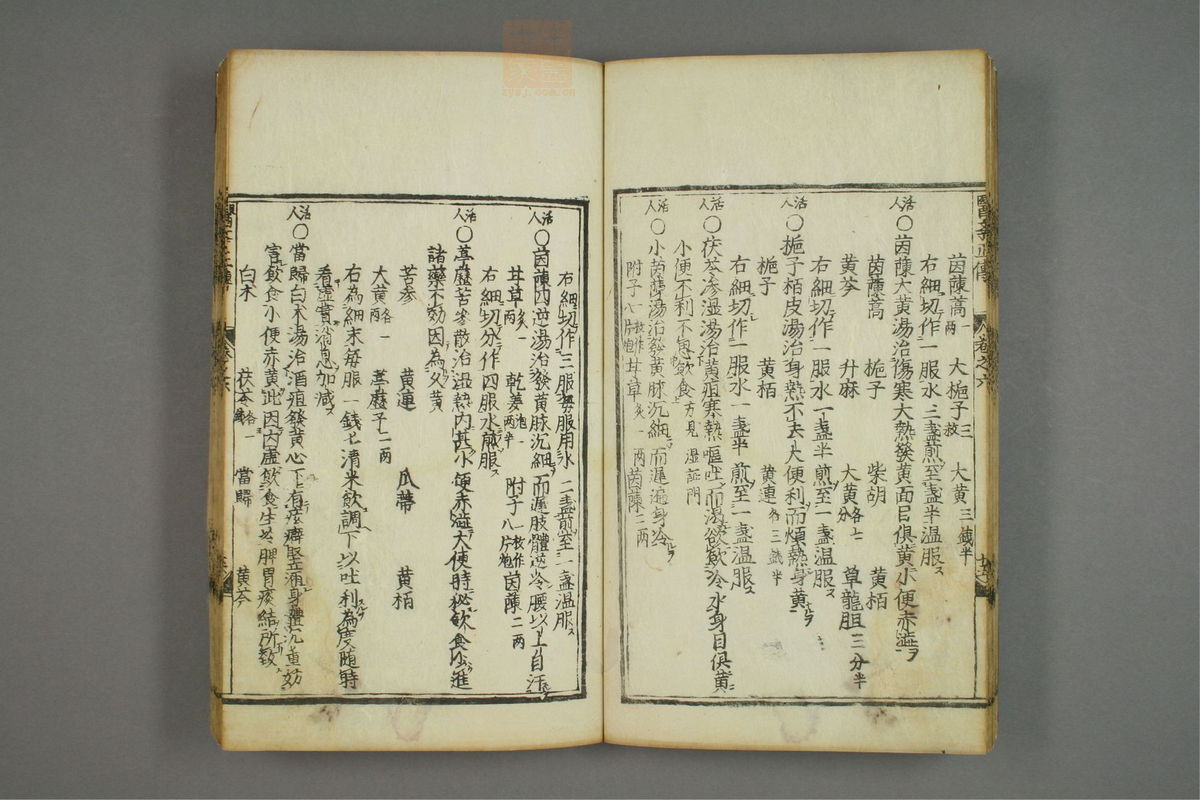 茵蔯蒿一兩 大梔子三枚 大黃三錢半
右細切作一服水三盞煎至一盞半溫服ス
活人〇茵蔯大黃湯治傷寒大熱發黃面目俱黃小便赤澁ヲ
茵蔯蒿 梔子 柴胡 黃栢
黃芩 升麻 大黃各七分 草龍胆三分半
右細切作一服水一盞半煎至一盞溫服ス
活人〇梔子栢皮湯治身熱不去大便利而煩熱身黃
梔子 黃栢 黃連各三錢半
右細切作一服水一盞半煎至一盞溫服
活人〇茯苓滲湿湯治黃疸寒熱嘔吐而渴欲飲冷水身目俱黃
小便不利不思飲食方見湿証門
活人〇小茵蔯湯治發黃脉沉細而遲遍身冷
附子一枚作八片炮 甘草炙一兩 茵蔯二兩
右細切作三服每服用水二盞煎至一盞溫服ス
活人〇茵蔯四逆湯治發黃脉沉細而遲肢體逆冷腰以上自汗
甘草炙一兩 乾姜炮一兩半 附子一枚作八片炮 茵蔯二兩
右細切分作四服水煎服ス
活人〇葶藶苦参散治湿熱内甚小便赤澁大便時秘飲食少進
諸藥不効因為久黃
苦参 黃連 瓜蒂 黃栢
大黃各一兩 葶藶子二兩
右為細末每服一錢七清米飲調下以吐利為度随時
看虚實消息加减ス
活人〇當歸白朮湯治酒疸發黃心下有痃癖堅滿身體沉重妨
害飲食小便赤黃此因内虛飲食生冷脾胃痰結所致
白朮 茯苓各一錢 當歸 黃芩